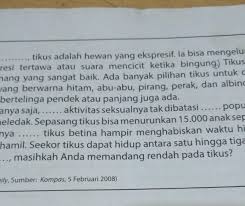 ......, tikus adalah hewan yang ekspresif. Ia bisa mengelu
resi tertawa atau suara mencicit ketika bingung) Tikus
nang yang sangat baik. Ada banyak pilihan tikus untuk d
yang berwarna hitam, abu-abu, pirang, perak, dan albino
bertelinga pendek atau panjang juga ada.
anya saja, ...... aktivitas seksualnya tak dibatasi ...... popu
meledak. Sepasang tikus bisa menurunkan 15.000 anak sep
nya ...... tikus betina hampir menghabiskan waktu hi
hamil. Seekor tikus dapat hidup antara satu hingga tiga
..., masihkah Anda memandang rendah pada tikus?
ily, Sumber: Kompas, 5 Februari 2008)